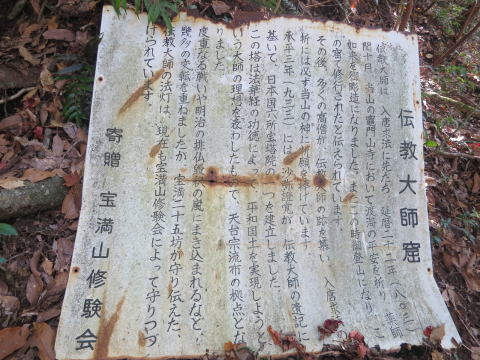 伝教大師窟
伝教大師は、入唐求法に先だち、延暦二十二年(八〇三)
閏十月、当山の竈門山寺において渡海の平安を祈り、薬師
如来を御彫造になりました。またこの時御登山になり、こ
の窟で修行されたと伝えられています。
その後、多くの高僧が、伝教大師の跡を慕い、入唐求法の
折には必ず当山の神に祈願を捧げています。
承平三年(九三三)には沙弥證覚が、伝教大師の遺記に
基いて、日本国六所宝塔院の一つを建立しました。
この塔は法華経の功徳によって、平和国土を実現しようと
いう大師の理想を表わしたもので、天台宗流布の拠点とな
りました。
度重なる戦いや明治の排仏毀釈の嵐にまき込まれるなど、
幾多の変転を重ねましたが、宝満二十五坊が守り伝えた、
伝教大師の法灯は、現在も宝満山修験会によって守りつづ
けられています。
寄贈 宝満山修験会